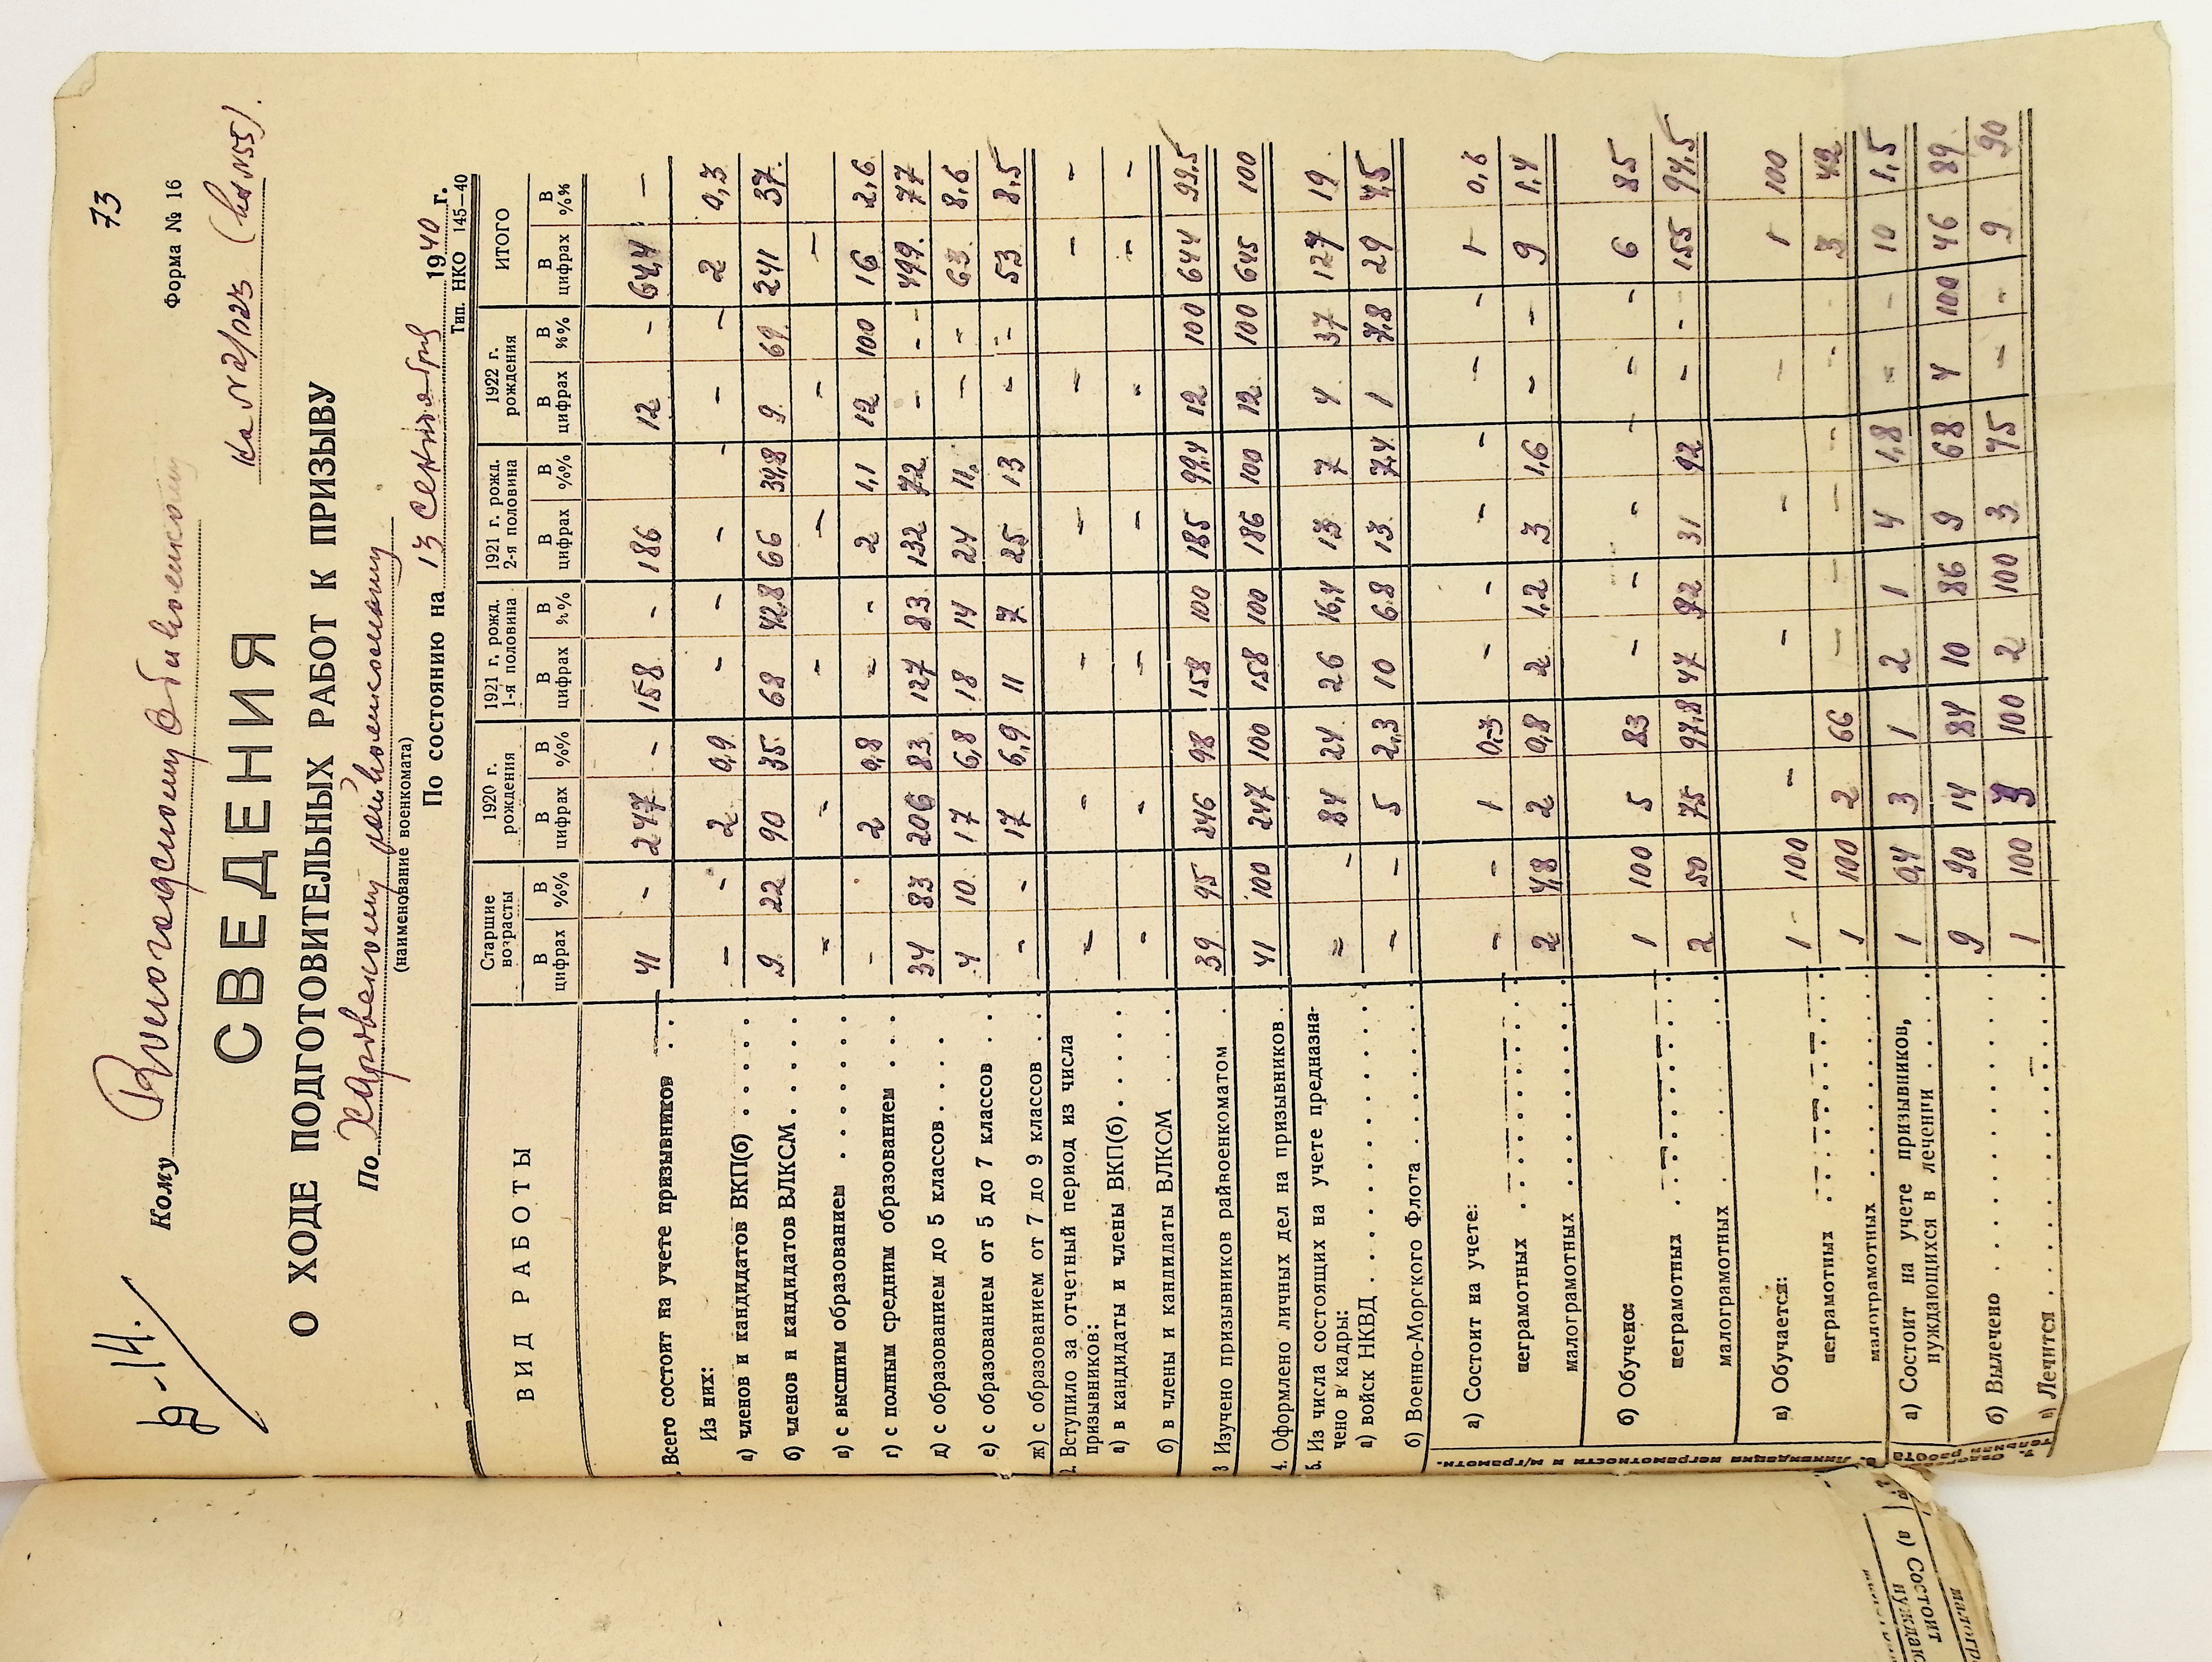 73
Форма № 16
в-14.
Кому Вологодскому Облвоенкому
На № 2/023 (вх № 55).
СВЕДЕНИЯ
О ХОДЕ ПОДГОТОВИТЕЛЬНЫХ РАБОТ К ПРИЗЫВУ
По Харовскому райвоенкомату
(наименование военкомата)
По состоянию на 13 Сентября 1940 г.
Тип. НКО 145—40
ВИД РАБОТЫ | Старшие возрасты | 1920 г. рождения | 1921 г. рожд. 1-я половина | 1921 г. рожд. 2-я половина | 1922 г. рождения | ИТОГО
В цифрах | В %% | В цифрах | В %% | В цифрах | В %% | В цифрах | В %% | В цифрах | В %% | В цифрах | В %%
Всего состоит на учете призывников . . | 41 | - | 247 | - | 158 | - | 186 | | 12 | - | 644 | -
Из них:
а) членов и кандидатов ВКП(б) . . . . . . | - | - | 2 | 0,9 | - | - | - | - | - | - | 2 | 0,3
б) членов и кандидатов ВЛКСМ . . . . . . | 9 | 22 | 90 | 35 | 68 | 42,8 | 66 | 34,8 | 9 | 69 | 241 | 37
в) с высшим образованием . . . . . . . | - | | - | | - | | - | | - | | -
г) с полным средним образованием . . . . | - | | 2 | 0,8 | - | - | 2 | 1,1 | 12 | 100 | 16 | 2,6
д) с образованием до 5 классов . . . . . | 34 | 83 | 206 | 83 | 127 | 83 | 132 | 72 | - | - | 499 | 77
е) с образованием от 5 до 7 классов . . | 4 | 10 | 17 | 6,8 | 18 | 14 | 24 | 11 | - | - | 63 | 8,6
ж) с образованием от 7 до 9 классов . . | - | - | 17 | 6,9 | 11 | 7 | 25 | 13 | - | - | 53 | 8,5
2. Вступило за отчетный период из числа
призывников:
а) в кандидаты и члены ВКП(б) . . . . . | - | | - | | - | | - | | - | | - | -
б) в члены и кандидаты ВЛКСМ . . . . | - | | - | | - | | - | | - | | - | -
3 Изучено призывников райвоенкоматом . | 39 | 95 | 246 | 98 | 158 | 100 | 185 | 99,4 | 12 | 100 | 644 | 99,5
4. Оформлено личных дел на призывников . | 41 | 100 | 247 | 100 | 158 | 100 | 186 | 100 | 12 | 100 | 645 | 100
5. Из числа состоящих на учете предназна-
чено в кадры:
а) войск НКВД . . . . . . . . . . . . | - | - | 84 | 24 | 26 | 16,4 | 13 | 7 | 4 | 37 | 127 | 19
б) Военно-Морского Флота . . . . . . . | - | - | 5 | 2,3 | 10 | 6.8 | 13 | 7,4 | 1 | 7,8 | 29 | 4,5
6. Ликвидация неграмотности и м/грамотн.
а) Состоит на учете:
неграмотных . . . . . . . | - | - | 1 | 0,3 | - | - | - | - | - | - | 1 | 0,6
малограмотных . . . . . . . | 2 | 4,8 | 2 | 0,8 | 2 | 1,2 | 3 | 1,6 | - | - | 9 | 1,4
б) Обучено:
неграмотных . . . . . . . | 1 | 100 | 5 | 83 | - | - | - | - | - | - | 6 | 85
малограмотных . . . . . . . | 2 | 50 | 75 | 97,8 | 47 | 92 | 31 | 92 | - | - | 155 | 94,5
в) Обучается:
неграмотных . . . . . . . | 1 | 100 | - | | - | | - | | - | | 1 | 100
малограмотных . . . . . . . | 1 | 100 | 2 | 66 | - | - | - | - | - | - | 3 | 42
а) Состоит на учете призывников,
нуждающихся в лечении . . . . | 1 | 0,4 | 3 | 1 | 2 | 1 | 4 | 1,8 | - | - | 10 | 1,5
б) Вылечено . . . . . . . . . . . | 9 | 90 | 14 | 84 | 10 | 86 | 9 | 68 | 4 | 100 | 46 | 89
в) Лечится . . . . . . . . . . . | 1 | 100 | 3 | 100 | 2 | 100 | 3 | 75 | - | - | 9 | 90
а) Состоит